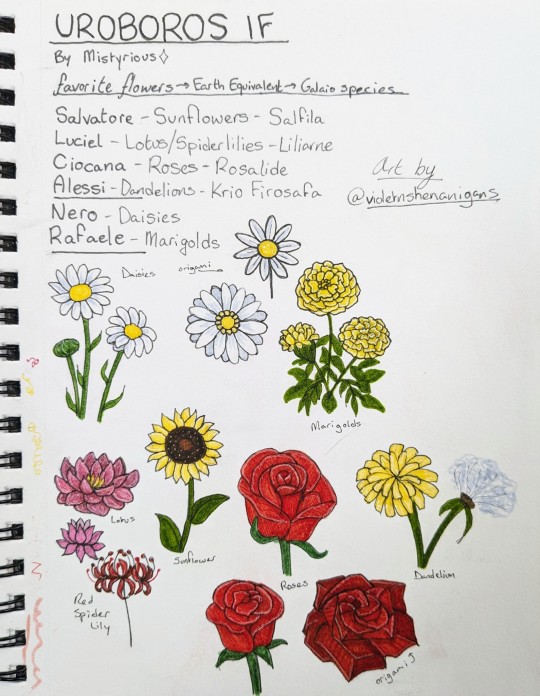 UROBOROS IF
By Mistyrious
favorite flowers → Earth Equivalent → Galaio species
Salvatore - Sunflowers - Salfila
Luciel - Lotus/Spiderlilies - Liliarne
Ciocana - Roses - Rosalide
Alessi - Dandelions - Krio Firosafa
Nero - Daisies
Rafaele - Marigolds
Art by
@violetnshenanigans
Daisies
origami
Marigolds
Lotus
Sunflower
Red
Spider
Lily
Roses
Dandelion
origami